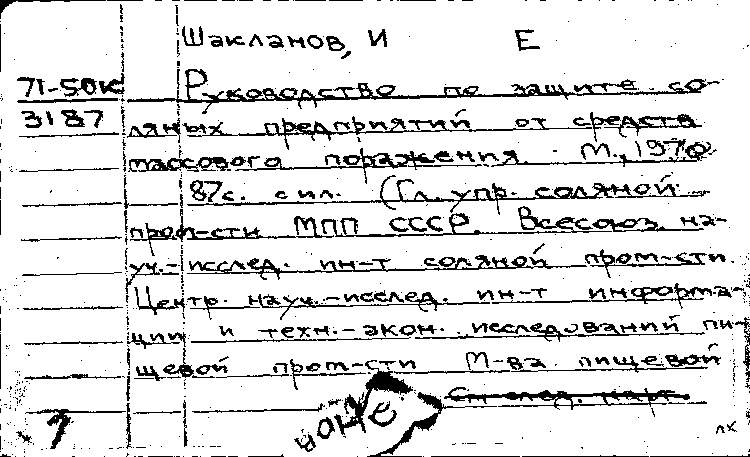 Шакланов, И Е
71-50к Руководство по защите со-
3187 ляных предприятий от средств
массового поражения. М., 1970
87с. с ил. (Гл. упр. соляной
пром-сти МПП СССР. Всесоюз. на-
уч.-исслед. ин-т соляной пром-сти.
Центр. науч.-исслед. ин-т информа-
ции и техн.-экон. исследований пи-
щевой пром-сти М-ва пищевой
См след. карт.
лк